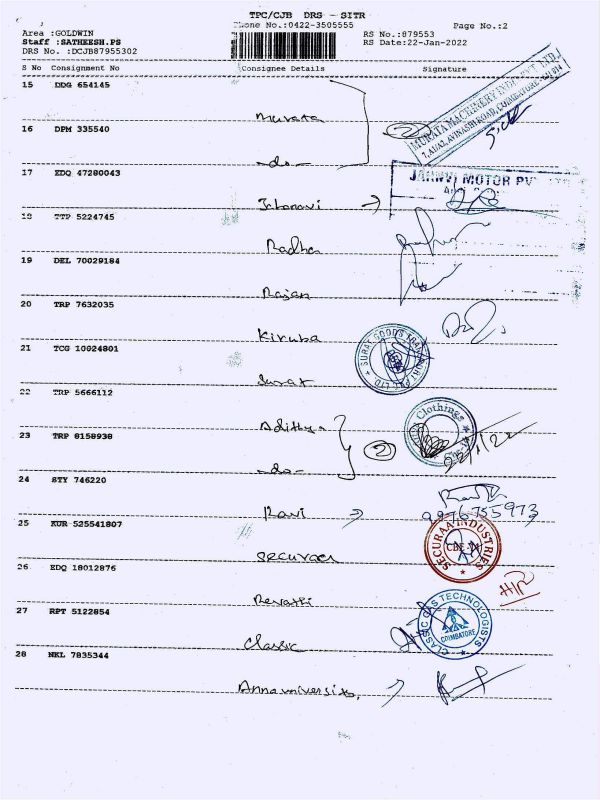 TPC/CJB DRS - SITR
Phone No.:0422-3505555
Page No.:2
Area :GOLDWIN
RS No.:879553
Staff :SATHEESH.PS
RS Date:22-Jan-2022
DRS No. :DCJB87955302
S No Consignment No Consignee Details Signature
15 DDG 654145
Murata
16 DPM 335540
-do-
2
MURATA MACHINERY INDIA PVT. LTD.
AVINASHI ROAD, COIMBATORE
17 EDQ 47280043
Jhanavi
JAHNVI MOTOR PV
18 TTP 5224745
Radha
19 DEL 70029184
Rajan
20 TRP 7632035
Kiruba
21 TCG 10024801
Surat
SURAT GOODS TRANSPORT PVT LTD
22 TRP 5666112
Adithya
Clothings
23 TRP 8158938
-do-
2
22/1/22
24 STY 746220
Ravi
9976755973
25 KUR 525541807
securaa
SECURAA INDUSTRIES
CBE
26 EDQ 18012876
Revathi
H/R
27 RPT 5122854
Classic
CLASSIC GAS TECHNOLOGISTS
COIMBATORE
28 NKL 7835344
Anna university,